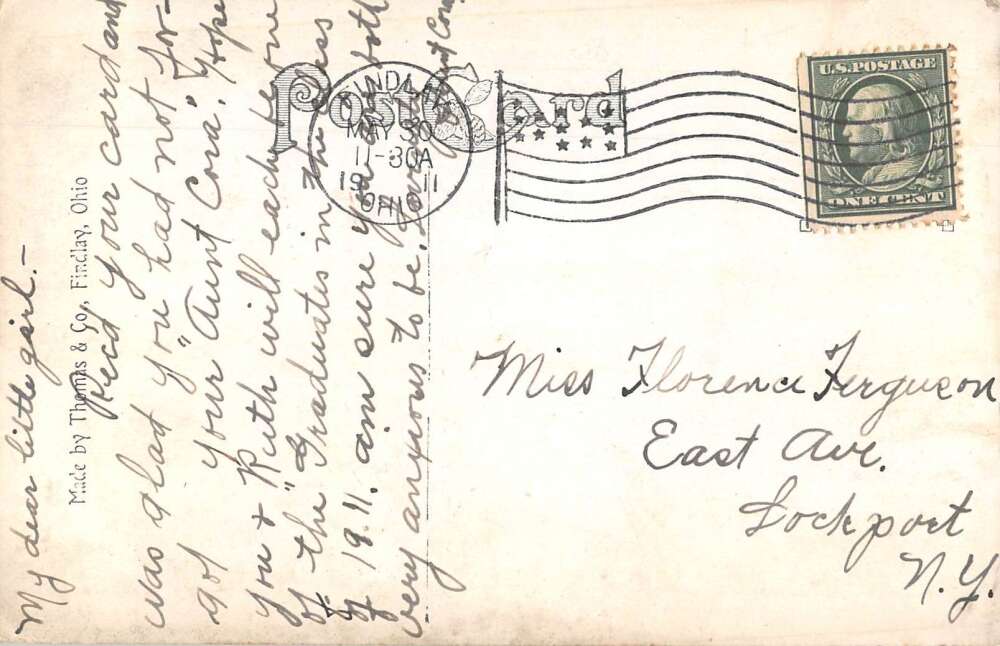 My dear little girl.-
Recd your card and
was glad you had not for-
got "your Aunt Cora." Hope
you & Ruth will each be one
of the "Graduates in the class
of 1911. Aim sure you are both
very anxious to be.
Aunt Cora
Made by Thomas & Co., Findlay, Ohio
Post Card
FINDLAY
MAY 30
11-30A
19 11
OHIO
U.S. POSTAGE
ONE CENT
Miss Florence Ferguson
East Ave.
Lockport
N.Y.